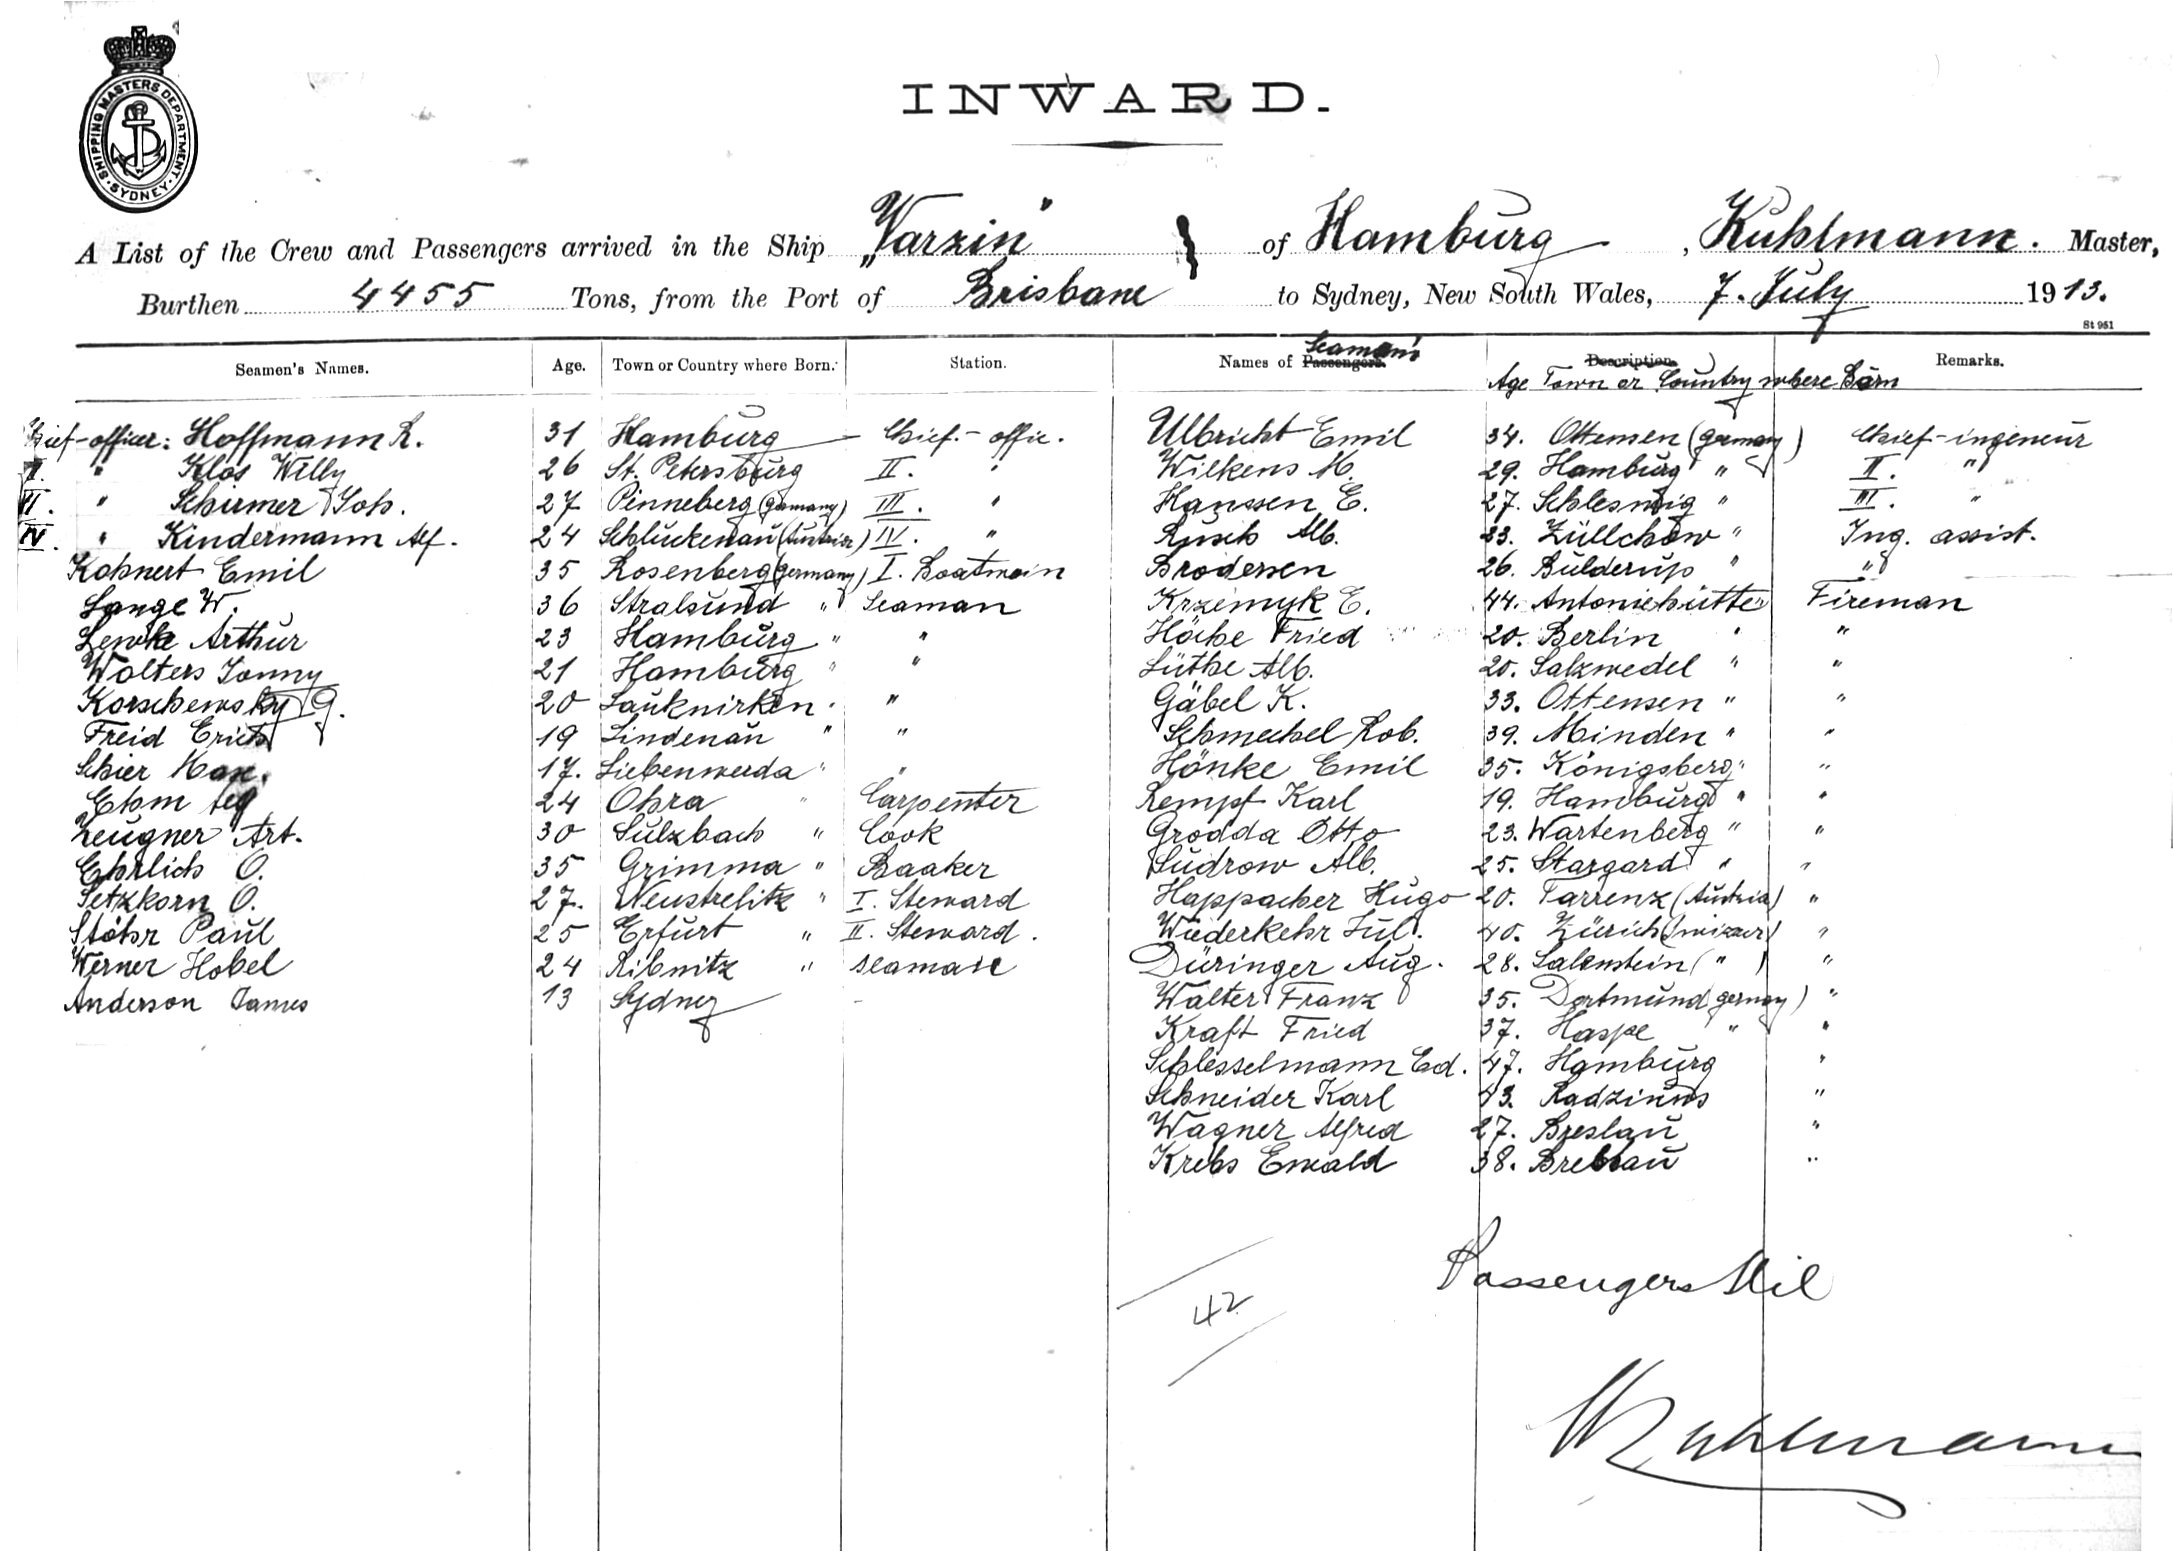 SHIPPING MASTERS DEPARTMENT
SYDNEY
INWARD.
A List of the Crew and Passengers arrived in the Ship „Varzin" of Hamburg, Kuhlmann. Master,
Burthen 4455 Tons, from the Port of Brisbane to Sydney, New South Wales, 7. July 1913.
St 951
Seamen's Names. Age. Town or Country where Born. Station.
Chief-officer: Hoffmann R. 31 Hamburg Chief.-offic.
II. " Klos Willy 26 St. Petersburg II. "
III. " Schirmer Joh. 27 Pinneberg (Germany) III. "
IV. " Kindermann Alf. 24 Schluckenau (Austria) IV. "
Kohnert Emil 35 Rosenberg (Germany) I. Boatmain
Lange W. 36 Stralsund " Seaman
Lemke Arthur 23 Hamburg " "
Wolters Jonny 21 Hamburg " "
Korschewsky G. 20 Lauknirken " "
Freid Erich 19 Lindenau " "
Schier Max. 17. Liebenwerda " "
Ehm 24 Ohra " Carpenter
Zeugner Art. 30 Sulzbach " Cook
Ehrlich O. 35 Grimma " Baaker
Setzkorn O. 27. Neustrelitz " I. Steward
Stöhr Paul 25 Erfurt " II. Steward.
Werner Hobel 24 Ribnitz " seaman
Anderson James 13 Sydney -
Names of Passengers. Seaman's Description Age Town or Country where Born Remarks.
Ulbricht Emil 34. Ottensen (Germany) Chief-ingeneur
Wilkens M. 29. Hamburg " II. "
Hanssen E. 27. Schleswig " III. "
Rusch Alb. 23. Züllchow " Ing. assist.
Brodersen 26. Bülderup " "
Krzemyk E. 44. Antoniehütte Fireman
Höche Fried 20. Berlin " "
Lüthe Alb. 20. Salzwedel " "
Gäbel K. 33. Ottensen " "
Schmechel Rob. 39. Minden " "
Hönke Emil 35. Königsberg " "
Rempf Karl 19. Hamburg " "
Grodda Otto 23. Wartenberg " "
Sudrow Alb. 25. Stargard " "
Happacher Hugo 20. Tarrenz (Austria) "
Wiederkehr Jul. 40. Zürich "
Düringer Aug. 28. Salenstein ( " ) "
Walter Franz 35. Dortmund (Germay) "
Kraft Fried 37. Haspe " "
Schlesselmann Ed. 47. Hamburg "
Schneider Karl 43. "
Wagner Alfred 27. Breslau "
Krebs Ewald 38. Breslau "
Passengers Nil
42
Kuhlmann